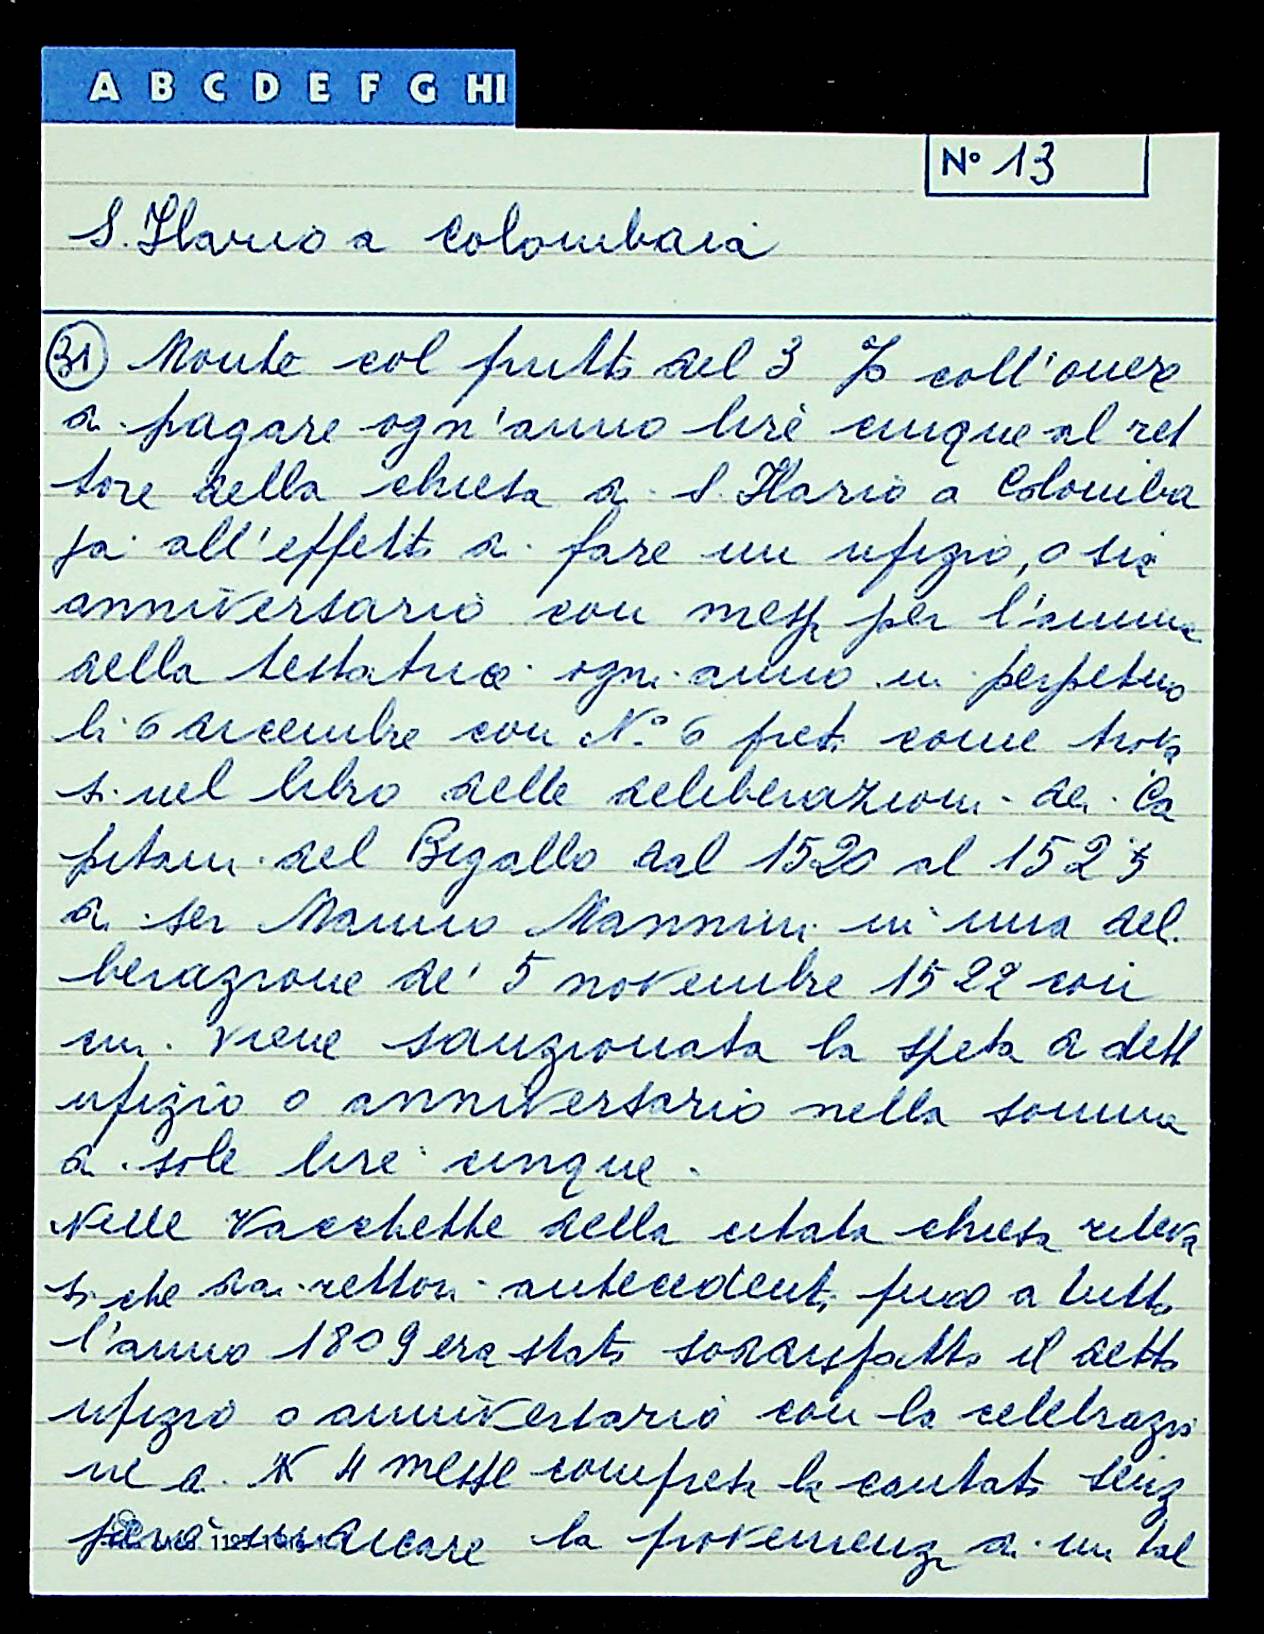 A B C D E F G HI
Nº 13
S. Ilario a Colombaia
31 Monte col frutto del 3 % coll'onere
di pagare ogn'anno lire cinque al ret
tore della chiesa di S. Ilario a Colomba
ja all'effetto di fare un ufizio, o sia
anniversario con messe per l'anima
della testatrice ogni anno in perpetuo
li 6 dicembre con N.º 6 preti come trova
si nel libro delle deliberazioni dei Ca
pitani del Bigallo dal 1520 al 1525
di ser Manno Mannini in una deli
berazione de' 5 novembre 1522 con
cui viene sanzionata la spesa di detto
ufizio o anniversario nella somma
di sole lire cinque.
Nelle Vacchette della citata chiesa rileva
si che dai rettori antecedenti fino a tutto
l'anno 1809 era stato soddisfatto il detto
ufizio o anniversario con la celebrazio
ne di N 4 messe compresa la cantata senza
però indicare la provenienza di un tal